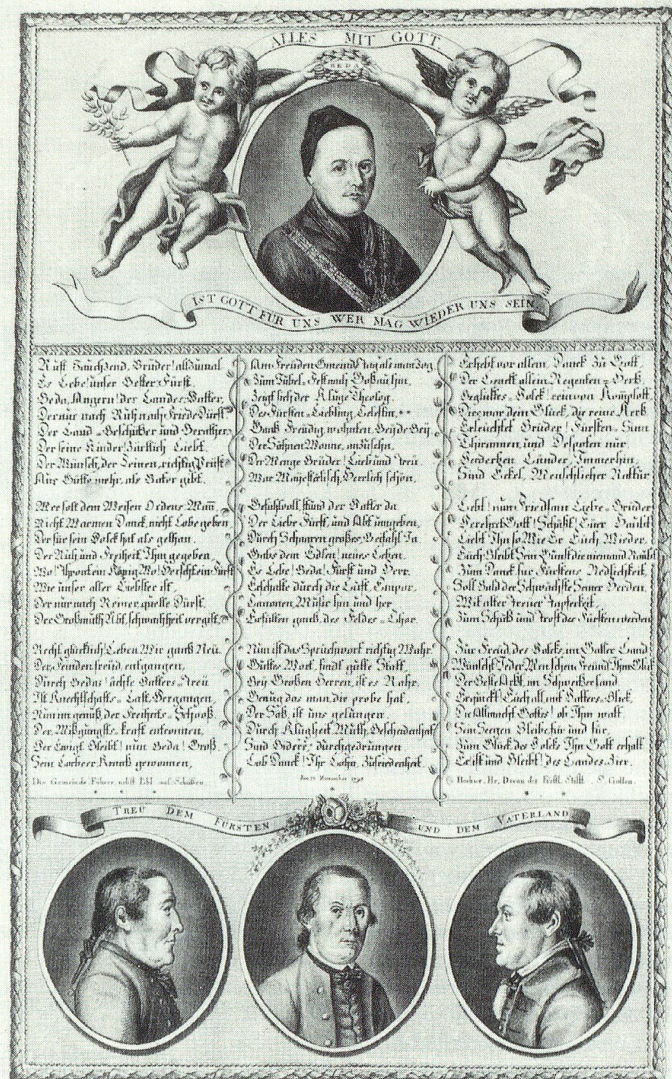 ALLES MIT GOTT.
BEDA
IST GOTT FÜR UNS WER MAG WIEDER UNS SEIN.
Rüft Jauchzend, Brüder! allzumal
Es Lebe! unser Bester Fürst.
Beda, Angern! der Landes-Vatter,
Der nur nach Ruh nach Friede Dürst
Der Land-Beschützer und Berather,
Der seine Kinder Zärtlich Liebt.
Der Wünsch, der Seinen, richtig Prüft
Aus Gütte mehr, als Vater gibt.
Wer solt dem Weisen Ordens-Mañ,
Nicht Warmen Danck, nicht Lobe geben
Der für sein Volck hat als gethan.
Der Ruh und Freiheit Ihm gegeben
Wo! Thront ein König Wo! Herscht ein Fürst
Wie unser aller Liebster ist,
Der nur nach Reiner quelle Dürst.
Der Großmüth übt, schwachheit vergist.
Recht glücklich! Leben Wir gantz Neü
Der Feinden freüd, entgangen,
Durch Beda! ächte Vatters-Treü
Ist Knechtschafts-Last Vergangen
Nun im genuß der Freiheits-Schooß
Der Mißgunsts-kraft entronnen,
Der Ewigt Bleibt! nün Beda! Groß,
Sein Lorbeer Krantz gewonnen,
Die Gemeinde Führer, nebst Lobl. aus-Schüssen.
Am Freüden Gmeinds tag als man Zog
Zum Jubel-Fest nach Goßau hin,
Zeugt bey der Klüge Theolog
Des Fürsten-Liebling, Celestin,**
Gantz Freüdig wohnten Beyde Bey
Der Söhnen Wonne, anzüsehn,
Der Menge Brüder! Lieb und treü,
War Majestätisch, Herrlich schön.
Gefühlvoll, stund der Vatter da
Der Liebe Fürst, und Abt umgeben,
Durch Scharren großes, Gefiehl Ja
Gabs dem Edlen, neues Leben.
Es Lebe! Beda! Fürst und Herr,
Erschallte durch die Lüft, Empor,
Canonen, Music hin und her
Erfülten gantz, des Feldes-Chor.
Nun ist das Sprüchwort richtig Wahr
Güttes Wort, findt gütte Statt,
Bey Großen Herren, ist es Rahr,
Genug das man, die probe hat,
Der Satz, ist uns gelungen
Durch Klugheit Müth, Bescheidenheit,
Sind Biderr, durchgedrungen
Lob Danck! Ihr Lohn, Zufriedenheit.
Erhebt vor allem, Danck Zu Gott,
Beglücktes-Volck, rein von Komplott,
Dies war dein Glück, die reine Kerb
Erleuchtet Brüder! Fürsten-Sinn
Thirannen, und Despoten nur
Verderben Länder, Immerhin,
Sind Eckel, Menschlicher Natur
Lebt! nun Friedsam Liebe-Brüder
Verehret Gott! Schätzt, Eüer Haubt
Liebt Ihn so Wie Er Eüch Wieder,
Zum Danck für Fürstens Redlichkeit,
Soll bald der Schwächste Seiner Herden
Mit alter treuer Tapferkeit,
Zum Schütz und trost des Fürsten werden
Zur Freüd, des Volcks, im Galler Land
Wünscht Jeder Menschen Freünd Ihm Glük
Der Beste Abbt, im Schweitzerland
Beglückt! Eüch all, mit Vatters-Blick.
Die Allmacht Gottes! ob Ihm walt
Sein Seegen Bleibe, für und für,
Zum Glück des Volcks Ihn Gott erhalt
Er ist und Bleibt! des Landes-Zier.
TREU DEM FÜRSTEN
UND DEM VATERLAND